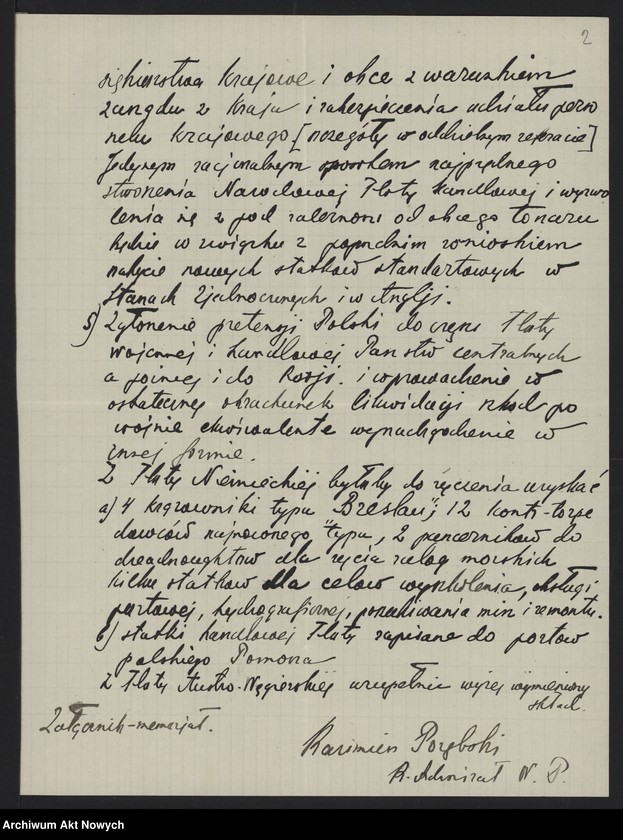 2
siębiorstwa krajowe i obce z warunkiem
zarządu z kraju i zabezpieczenia udziału perso
nelu krajowego [szczegóły w oddzielnym referacie]
Jedynym racjonalnym sposobem najprędnego
stworzenia Narodowej Floty handlowej i wyzwo
lenia się z pod zależności od obcego tonarzu
będzie w związku z poprzednim wnioskiem
nabycie nowych statków standartowych w
Stanach Zjednoczonych i w Anglji.
5) Zgłoszenie pretensji Polski do części Floty
wojennej i handlowej Państw centralnych
a później i do Rosji. i wprowadzenie w
ostateczny obrachunek likwidacji szkod po
wojnie ekwiwalentu wynadgrodzenie w
innej formie.
Z Floty Niemieckiej byłoby do życzenia uzyskać
a) 4 krążowniki typu "Breslau"; 12 kontr-torpe
dowców najnowszego typu, 2 pancerników do
dreadnoughtów dla załog morskich
kilku statków dla celów wyszkolenia, obsługi
portowej, hydrograficznej, poszukiwania min i remontu.
b) statki handlowej Floty zapisane do portów
polskiego Pomorza
Z Floty Austro-Węgierskiej wyżej wymieniony
skład.
Załącznik-memorjał.
Kazimierz Porębski
K-Admirał W. P.
Archiwum Akt Nowych